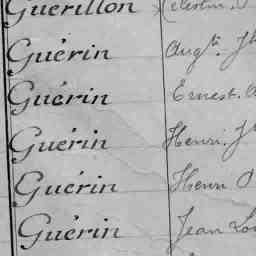 Guérillon Célestin
Guérin Aug.te J
Guérin Ernest A
Guérin Henri J
Guérin Henri
Guérin Jean Lou